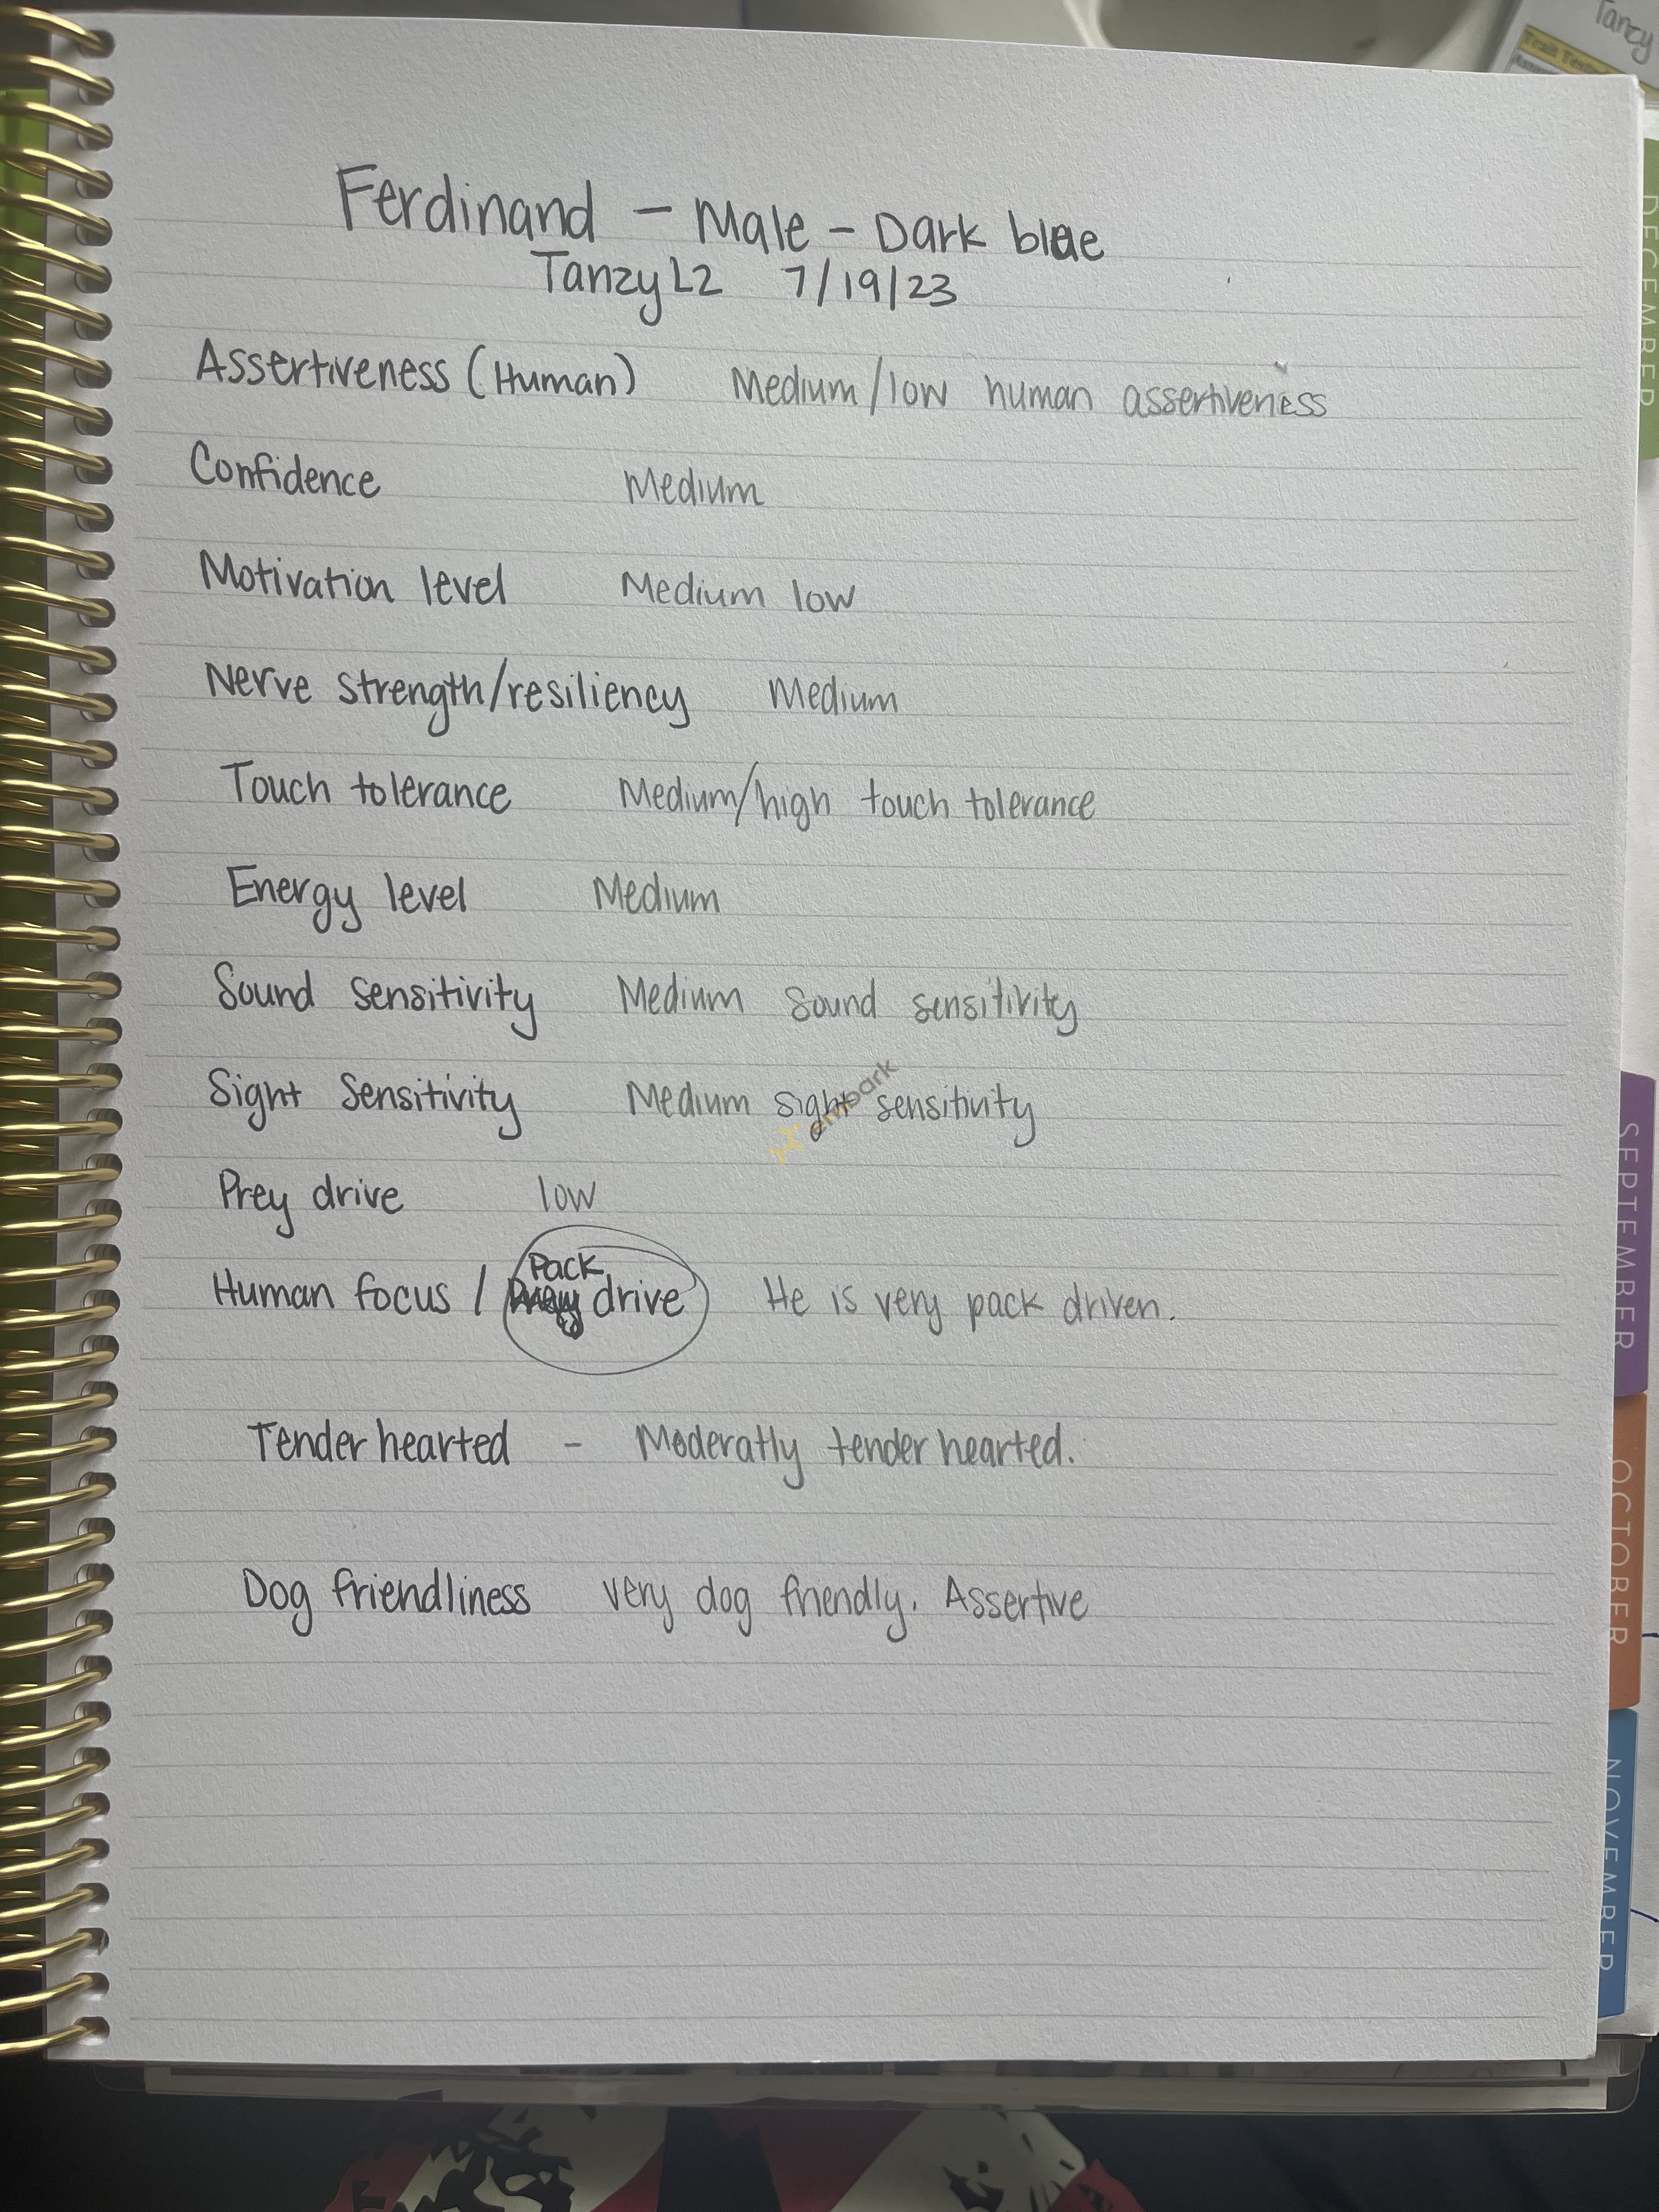 Tanzy
Train Testing
DECEMBER
Ferdinand - Male - Dark blue
Tanzy L2 7/19/23
Assertiveness (Human) Medium/low human assertiveness
Confidence Medium
Motivation level Medium low
Nerve strength/resiliency Medium
Touch tolerance Medium/high touch tolerance
Energy level Medium
Sound sensitivity Medium sound sensitivity
Sight sensitivity Medium sight sensitivity
embark
Prey drive low
Pack
Human focus / drive He is very pack driven.
Tender hearted - Moderatly tender hearted.
Dog friendliness very dog friendly. Assertive
SEPTEMBER
OCTOBER
NOVEMBER